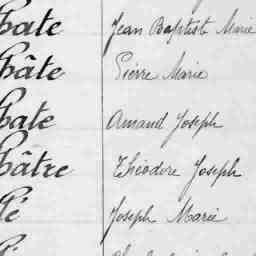 hate Jean Baptiste Marie
hâte Pierre Marie
hate Amand Joseph
hâtre Théodore Joseph
lé Joseph Marie